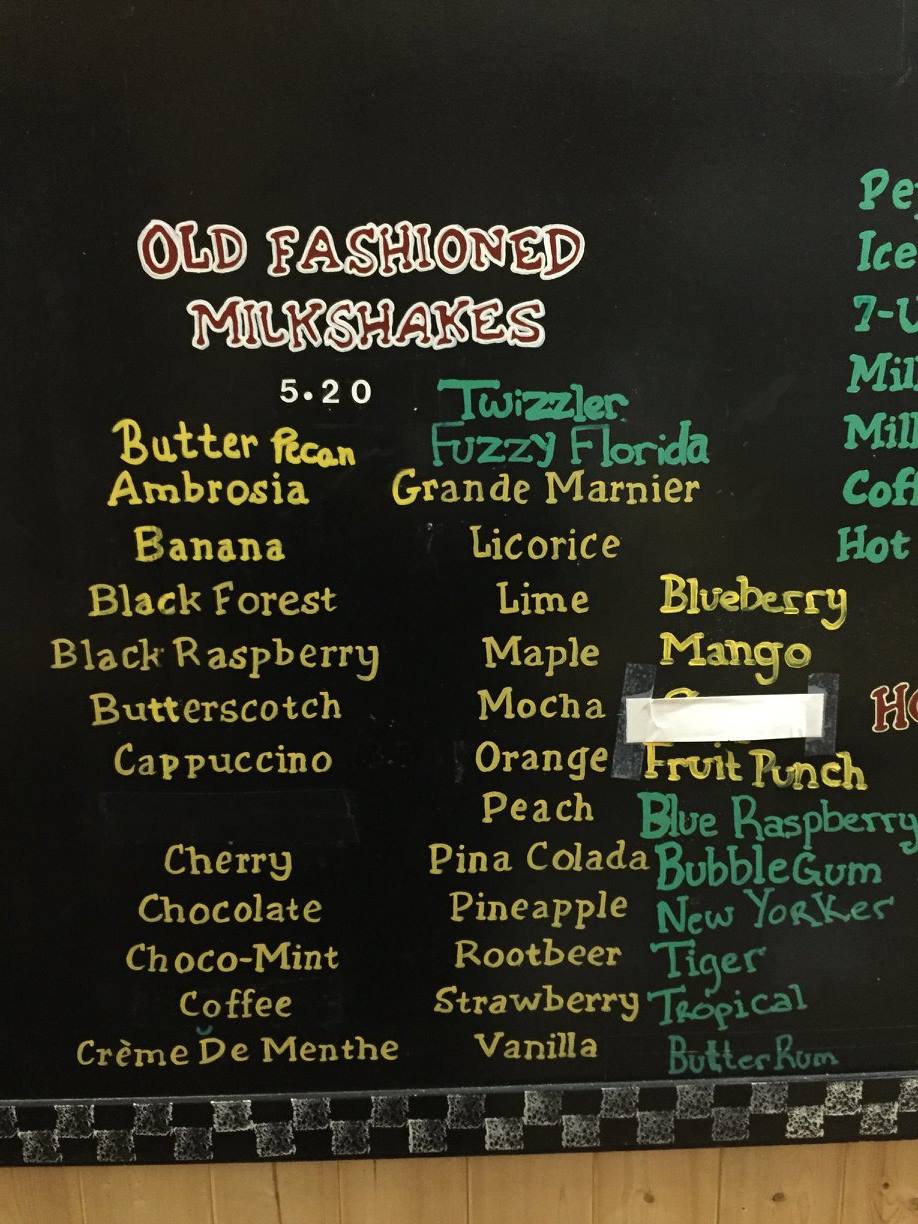 OLD FASHIONED
MILKSHAKES
5.20
Butter Pecan
Ambrosia
Banana
Black Forest
Black Raspberry
Butterscotch
Cappuccino
Cherry
Chocolate
Choco-Mint
Coffee
Crème De Menthe
Twizzler
Fuzzy Florida
Grande Marnier
Licorice
Lime
Maple
Mocha
Orange
Peach
Pina Colada
Pineapple
Rootbeer
Strawberry
Vanilla
Blueberry
Mango
Fruit Punch
Blue Raspberry
BubbleGum
New Yorker
Tiger
Tropical
Butter Rum
Ice
Hot